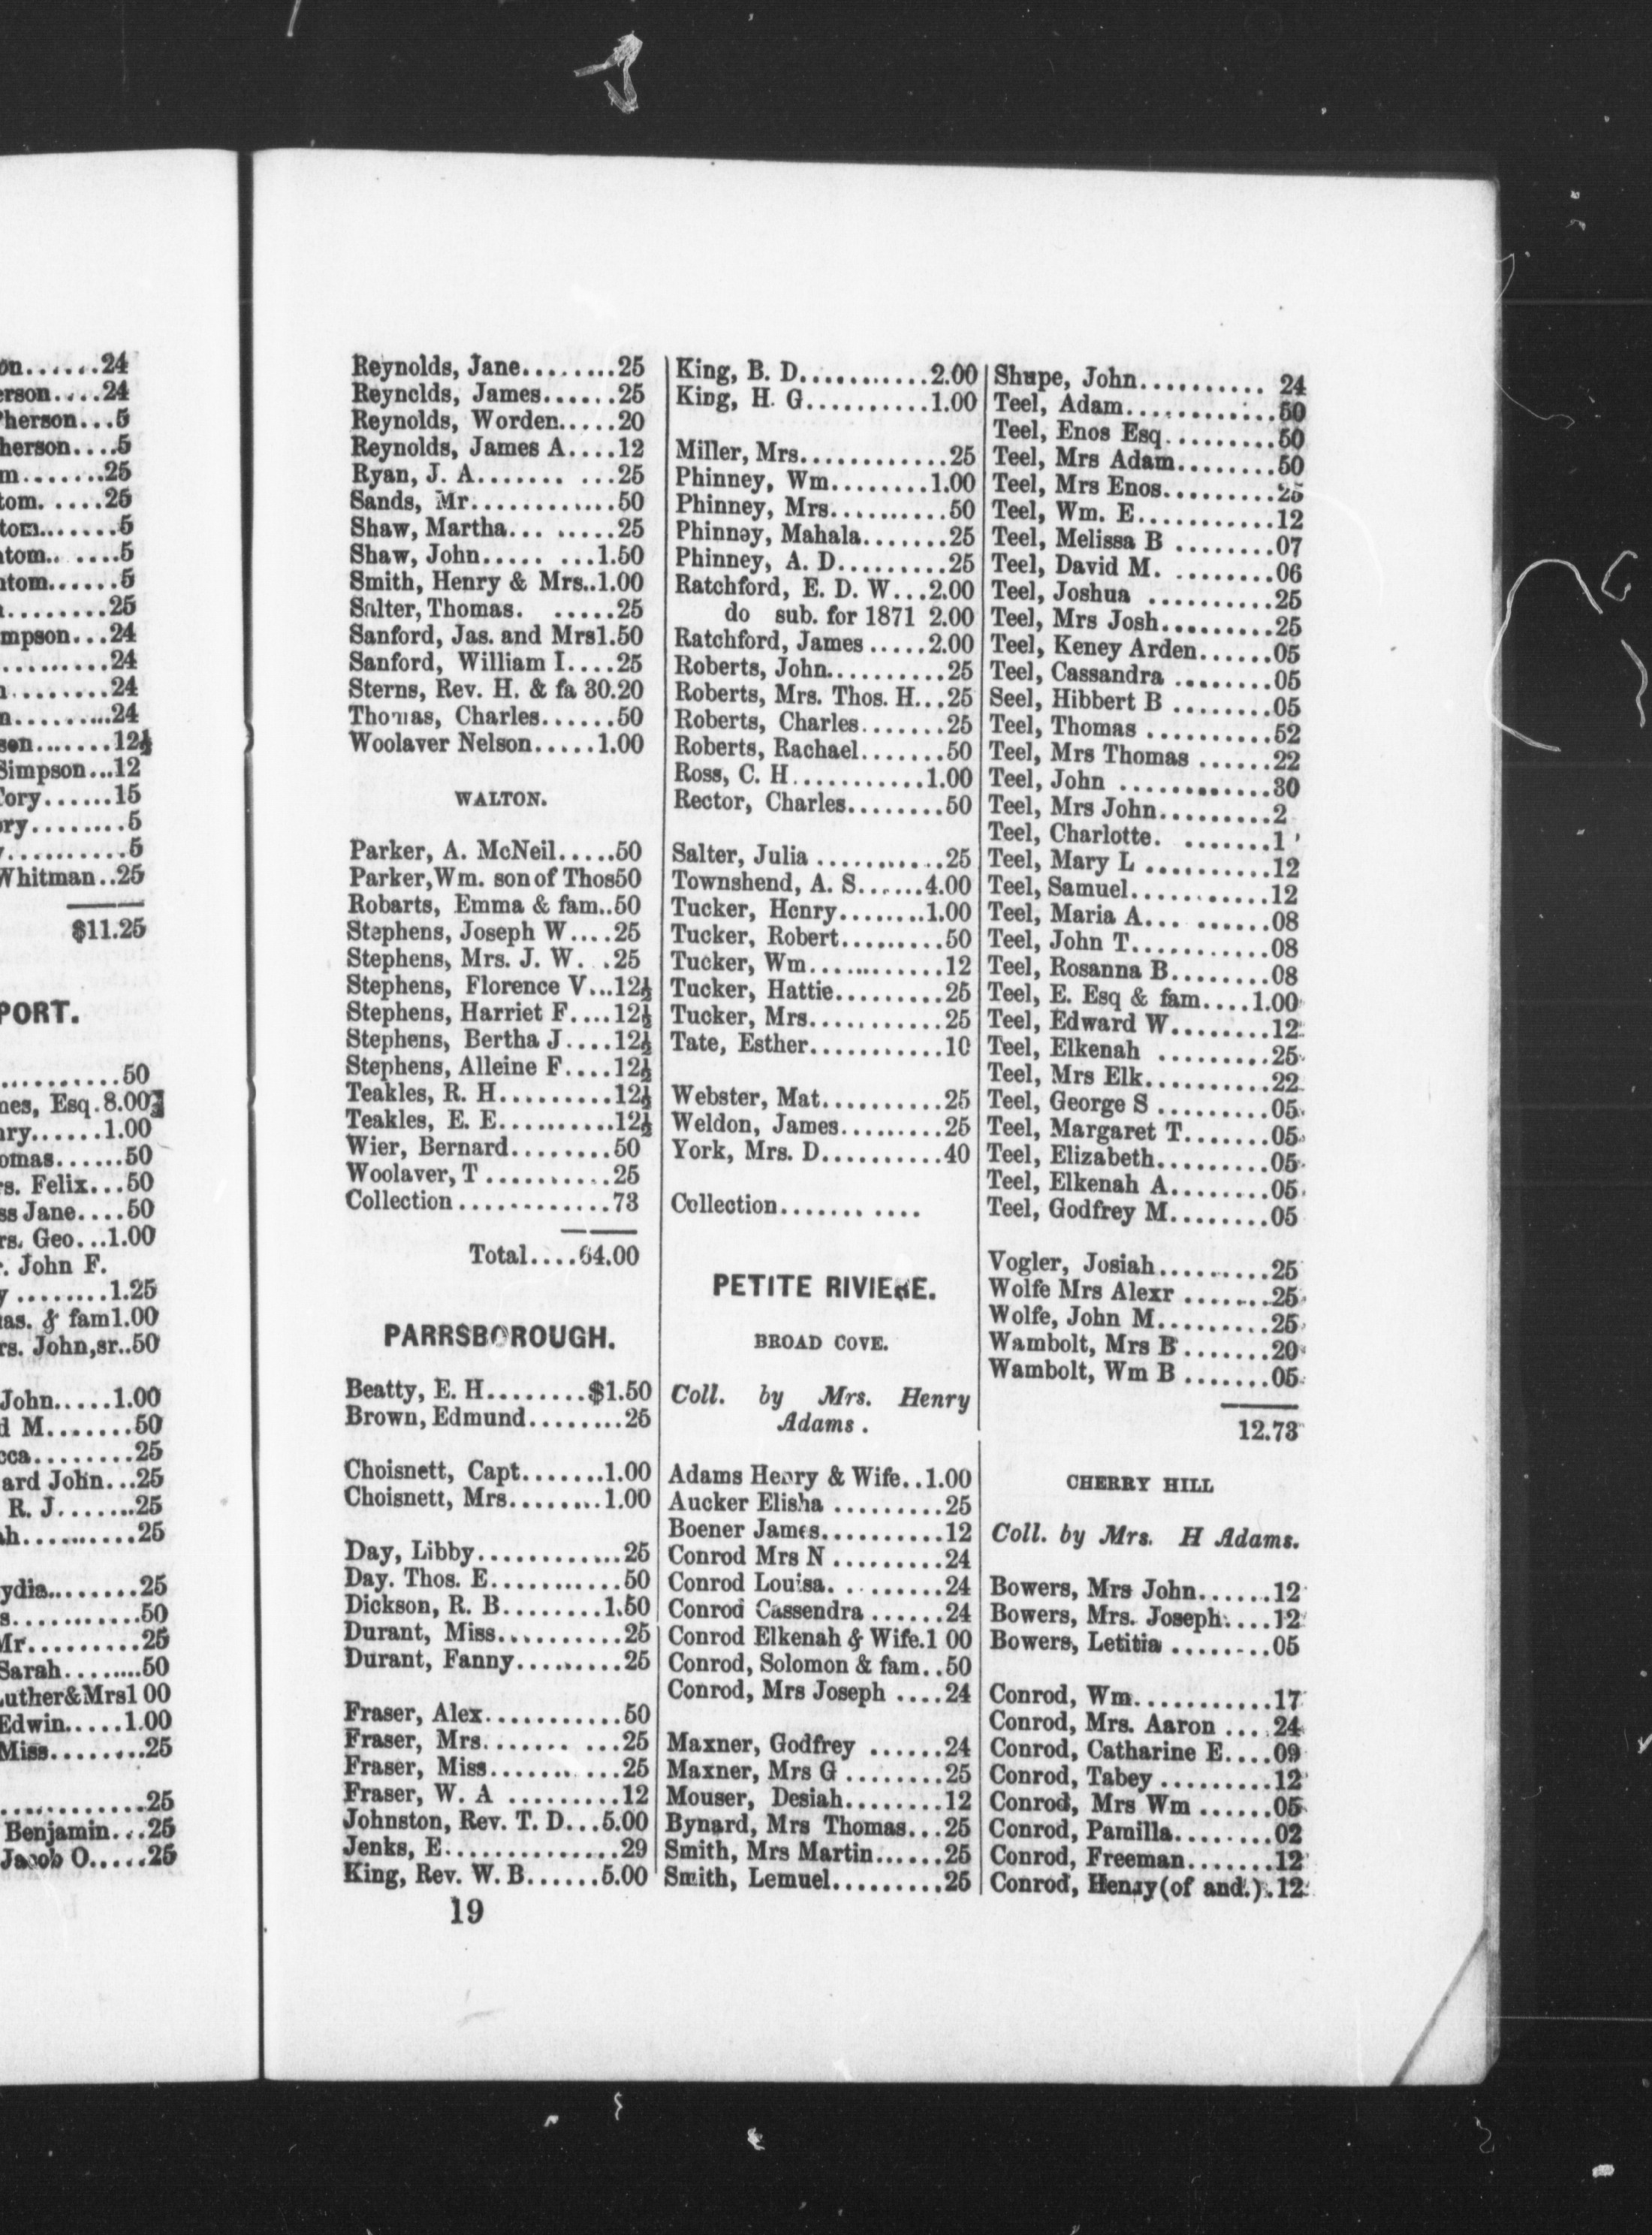 on......24
erson....24
Pherson...5
herson....5
m.......25
tom. .....25
tom.......5
ntom.. ....5
ntom......5
........25
mpson...24
.........24
........24
n.........24
son.......12½
Simpson...12
Tory......15
ory........5
..........5
Whitman..25
$11.25
PORT.
............50
mes, Esq.8.00
nry......1.00
omas......50
rs. Felix...50
ss Jane....50
rs. Geo...1.00
. John F.
y ........1.25
as. & fam1.00
rs. John,sr..50
John.....1.00
d M.......50
cca........25
ard John...25
R. J.......25
ah..........25
ydia........25
s...........50
Mr.........25
Sarah........50
Luther&Mrs1 00
Edwin.....1.00
Miss.........25
.............25
Benjamin...25
Jacob O.....25
Reynolds, Jane........25
Reynolds, James......25
Reynolds, Worden.....20
Reynolds, James A....12
Ryan, J. A....... ...25
Sands, Mr............50
Shaw, Martha... ......25
Shaw, John..... ...1.50
Smith, Henry & Mrs..1.00
Salter, Thomas. .....25
Sanford, Jas. and Mrs1.50
Sanford, William I....25
Sterns, Rev. H. & fa 30.20
Thomas, Charles......50
Woolaver Nelson.....1.00
WALTON.
Parker, A. McNeil.....50
Parker, Wm. son of Thos50
Robarts, Emma & fam..50
Stephens, Joseph W....25
Stephens, Mrs. J. W. ..25
Stephens, Florence V...12½
Stephens, Harriet F....12½
Stephens, Bertha J....12½
Stephens, Alleine F....12½
Teakles, R. H.........12½
Teakles, E. E..........12½
Wier, Bernard........50
Woolaver, T ..........25
Collection ............73
Total....64.00
PARRSBOROUGH.
Beatty, E. H........$1.50
Brown, Edmund........25
Choisnett, Capt.......1.00
Choisnett, Mrs........1.00
Day, Libby............25
Day. Thos. E...........50
Dickson, R. B........1.50
Durant, Miss..........25
Durant, Fanny.........25
Fraser, Alex...........50
Fraser, Mrs....... ...25
Fraser, Miss........ ....25
Fraser, W. A .........12
Johnston, Rev. T. D...5.00
Jenks, E..............29
King, Rev. W. B......5.00
19
King, B. D...........2.00
King, H. G..........1.00
Miller, Mrs............25
Phinney, Wm........1.00
Phinney, Mrs..........50
Phinney, Mahala.......25
Phinney, A. D.........25
Ratchford, E. D. W...2.00
do sub. for 1871 2.00
Ratchford, James .....2.00
Roberts, John..........25
Roberts, Mrs. Thos. H...25
Roberts, Charles.......25
Roberts, Rachael.......50
Ross, C. H...........1.00
Rector, Charles........50
Salter, Julia ...........25
Townshend, A. S......4.00
Tucker, Henry........1.00
Tucker, Robert.........50
Tucker, Wm............12
Tucker, Hattie.........25
Tucker, Mrs...........25
Tate, Esther...........10
Webster, Mat..........25
Weldon, James.........25
York, Mrs. D..........40
Collection....... ....
PETITE RIVIERE.
BROAD COVE.
Coll. by Mrs. Henry
Adams .
Adams Henry & Wife..1.00
Aucker Elisha .........25
Boener James..........12
Conrod Mrs N .........24
Conrod Louisa. ........24
Conrod Cassendra ......24
Conrod Elkenah & Wife.1 00
Conrod, Solomon & fam..50
Conrod, Mrs Joseph ....24
Maxner, Godfrey ......24
Maxner, Mrs G ........25
Mouser, Desiah........12
Bynard, Mrs Thomas...25
Smith, Mrs Martin......25
Smith, Lemuel.........25
Shupe, John.......... 24
Teel, Adam............50
Teel, Enos Esq.........50
Teel, Mrs Adam........50
Teel, Mrs Enos.........25
Teel, Wm. E...........12
Teel, Melissa B ........07
Teel, David M. ........06
Teel, Joshua ..........25
Teel, Mrs Josh.........25
Teel, Keney Arden......05
Teel, Cassandra ........05
Seel, Hibbert B ........05
Teel, Thomas ..........52
Teel, Mrs Thomas ......22
Teel, John ............30
Teel, Mrs John.........2
Teel, Charlotte. .......1
Teel, Mary L ..........12
Teel, Samuel...........12
Teel, Maria A... ......08
Teel, John T...........08
Teel, Rosanna B........08
Teel, E. Esq & fam....1.00
Teel, Edward W........12
Teel, Elkenah .........25
Teel, Mrs Elk..........22
Teel, George S .........05
Teel, Margaret T.......05
Teel, Elizabeth.........05
Teel, Elkenah A........05
Teel, Godfrey M........05
Vogler, Josiah.........25
Wolfe Mrs Alexr .......25
Wolfe, John M.........25
Wambolt, Mrs B .......20
Wambolt, Wm B .......05
12.73
CHERRY HILL
Coll. by Mrs. H Adams.
Bowers, Mrs John......12
Bowers, Mrs. Joseph....12
Bowers, Letitia ........05
Conrod, Wm...........17
Conrod, Mrs. Aaron ....24
Conrod, Catharine E....09
Conrod, Tabey .........12
Conrod, Mrs Wm ......05
Conrod, Pamilla........02
Conrod, Freeman.......12
Conrod, Henry(of and.).12